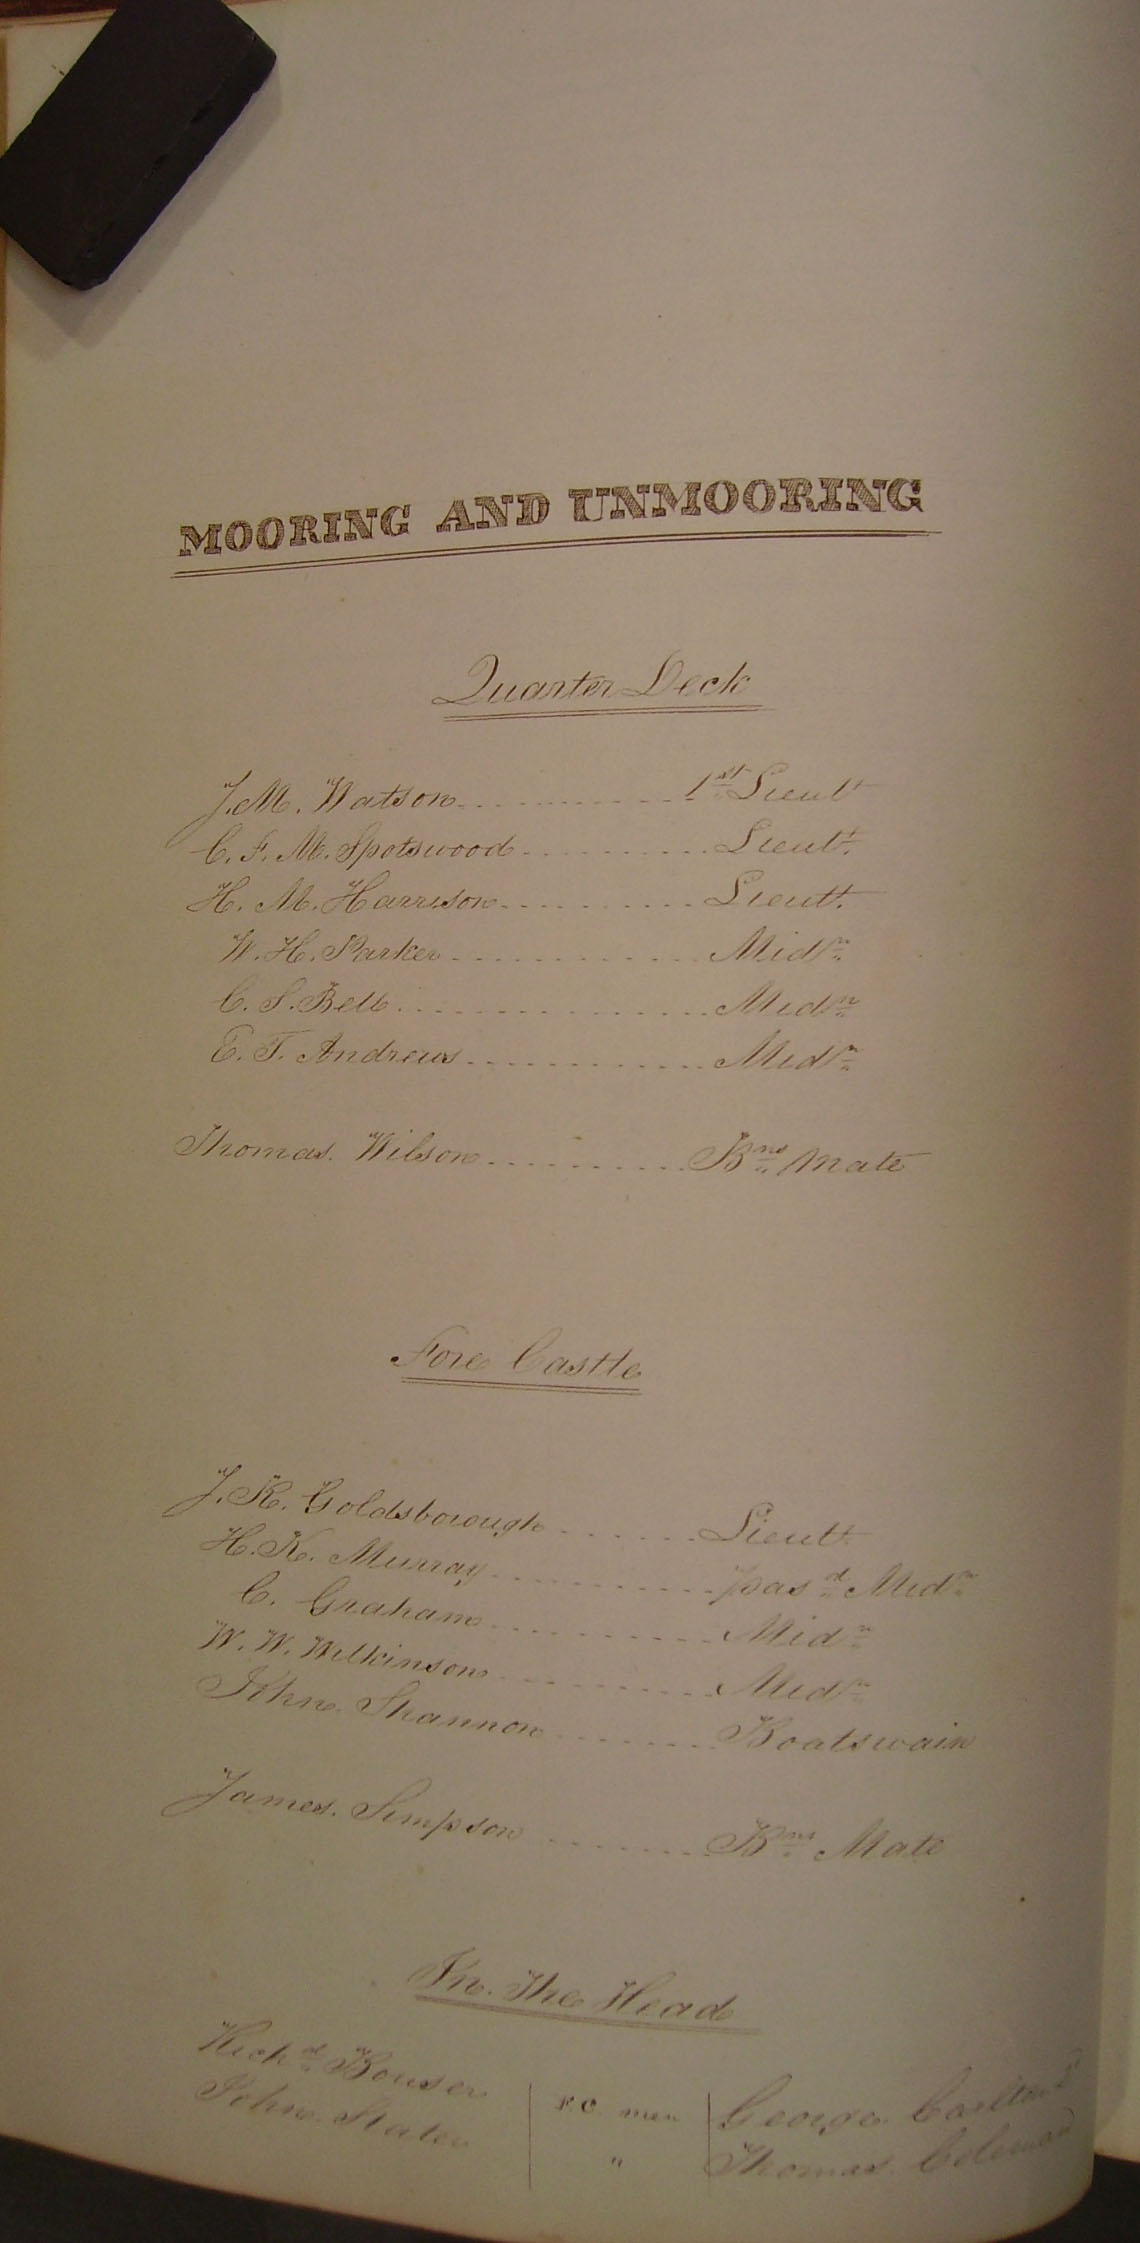 MOORING AND UNMOORING
Quarter Deck
J. M. Watson 1st Lieut
C. F. M. Spotswood Lieut.
H. M. Harrison Lieut.
W. H. Parker Midn
C. S. Bell Midn
E. T. Andrews Midn
Thomas Wilson Bns Mate
Fore Castle
J. R. Goldsborough Lieut
H. K. Murray pasd Midn
C. Graham Midn
W. W. Wilkinson Midn
John Shannon Boatswain
James Simpson Bns Mate
In The Head
Richd Bouser F.C. men George
John Slater " Thomas Coleman